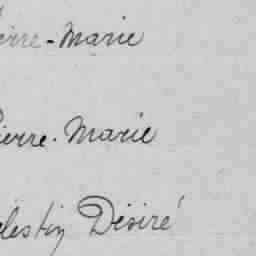 ierre-Marie
Pierre-Marie
élestin Désiré